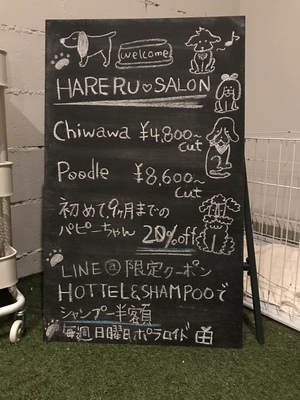 welcome
HARERU♡SALON
Chiwawa ¥4,800~
cut
Poodle ¥8,600~
cut
初めて、9ヶ月までの
パピーちゃん 20%off
LINE@限定クーポン
HOTTEL&SHAMPOOで
シャンプー半額
毎週日曜日ポラロイド